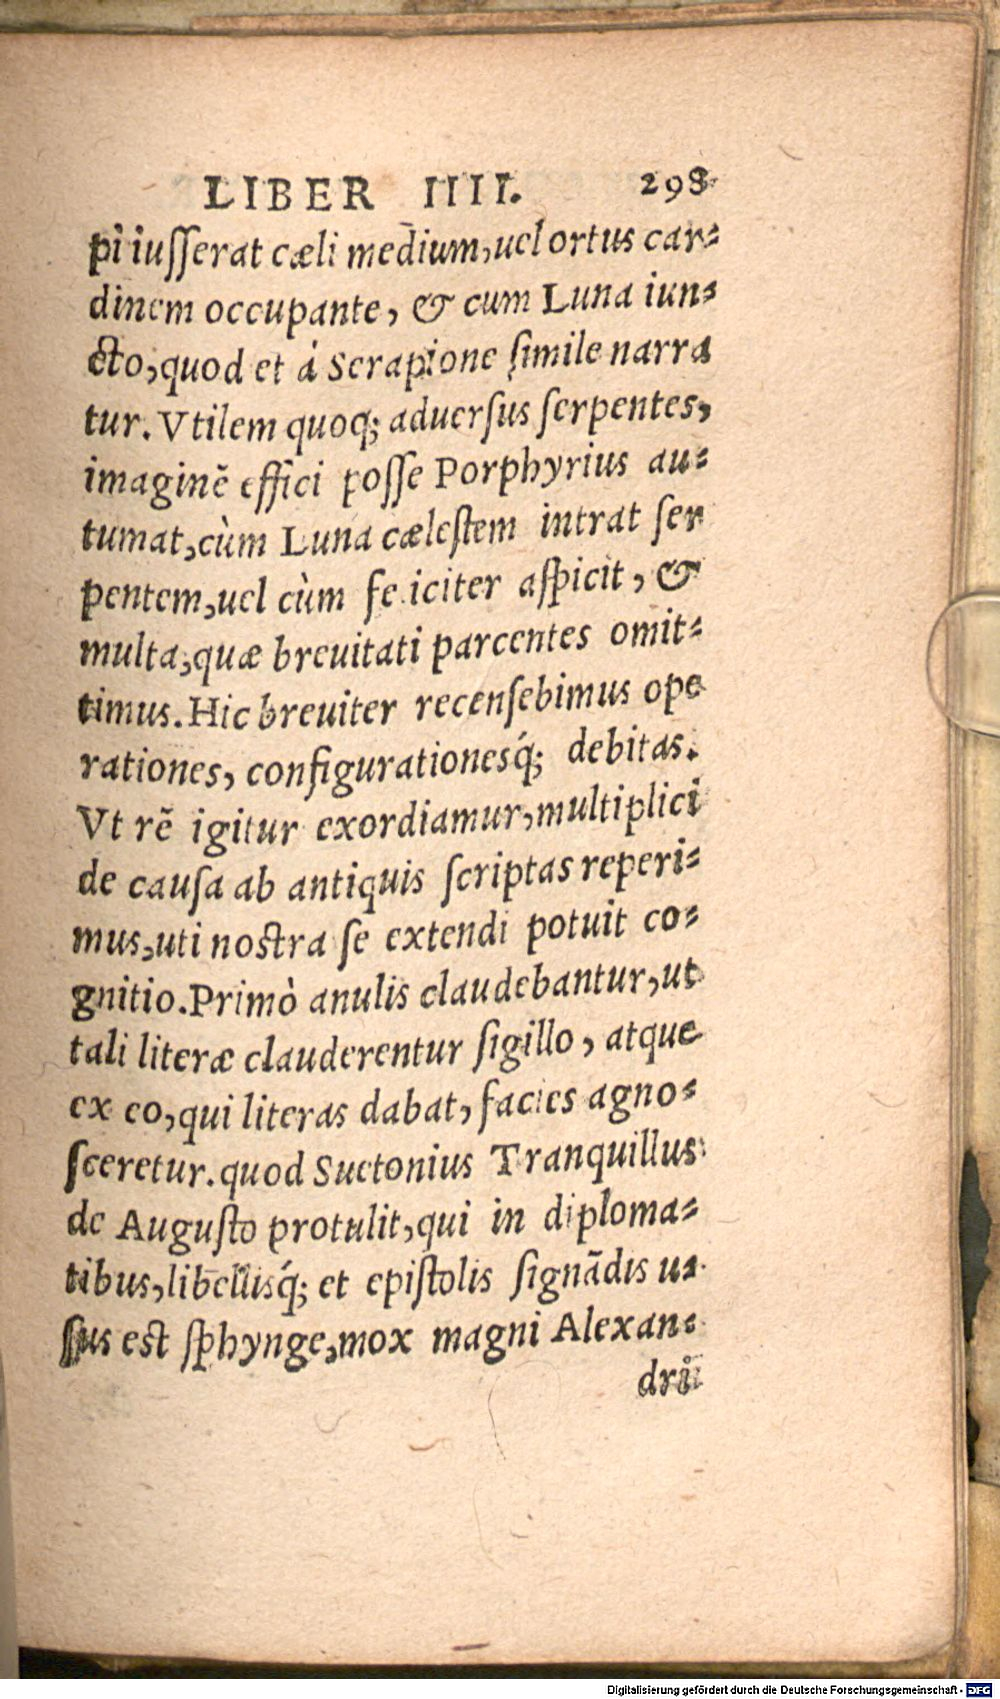 LIBER IIII. 298
pi iuſſerat cæli medium, uel ortus car-
dinem occupante, & cum Luna iun-
cto, quod et à Serapione ſimile narra
tur. Vtilem quoq; aduerſus ſerpentes,
imaginē effici poſſe Porphyrius au-
tumat, cùm Luna cæleſtem intrat ſer
pentem, uel cùm feliciter aſpicit, &
multa, quæ breuitati parcentes omit-
timus. Hic breuiter recenſebimus ope
rationes, configurationesq́; debitas.
Vt rē igitur exordiamur, multiplici
de cauſa ab antiquis ſcriptas reperi-
mus, uti noſtra ſe extendi potuit co-
gnitio. Primò anulis claudebantur, ut
tali literæ clauderentur ſigillo, atque
ex eo, qui literas dabat, facies agno-
ſceretur. quod Suetonius Tranquillus
de Auguſto protulit, qui in diploma-
tibus, libellisq́; et epiſtolis ſignādis u-
ſus eſt ſphynge, mox magni Alexan-
dri
Digitalisierung gefördert durch die Deutsche Forschungsgemeinschaft - DFG